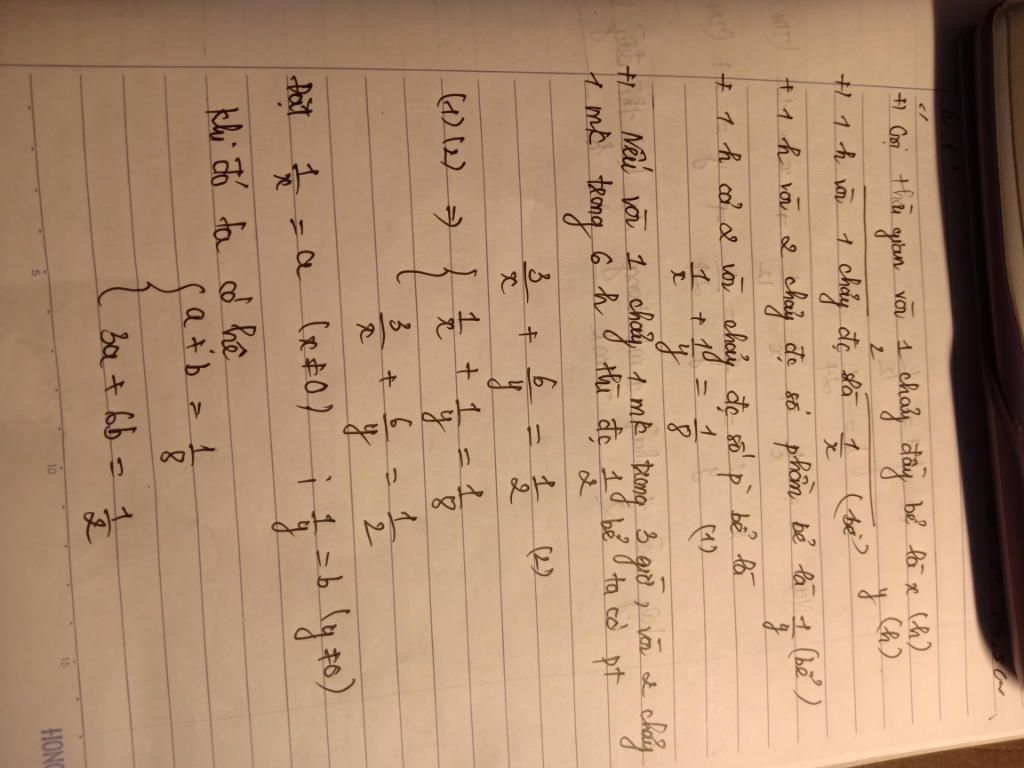 +) Gọi thời gian vòi 1 chảy đầy bể là x (h)
2 y (h)
+) 1 h vòi 1 chảy đc số 1/x (bể)
+ 1 h vòi 2 chảy đc số phần bể là 1/y (bể)
+ 1 h cả 2 vòi chảy đc số p` bể là
1/x + 1/y = 1/8 (1)
+) Nếu vòi 1 chảy 1 mk trong 3 giờ, vòi 2 chảy
1 mk trong 6 h thì đc 1/2 bể ta có pt
3/x + 6/y = 1/2 (2)
(1)(2) => { 1/x + 1/y = 1/8
3/x + 6/y = 1/2
Đặt 1/x = a (x ≠ 0) ; 1/y = b (y ≠ 0)
Khi đó ta có hệ
{ a + b = 1/8
{ 3a + 6b = 1/2
5
10
15
HONG